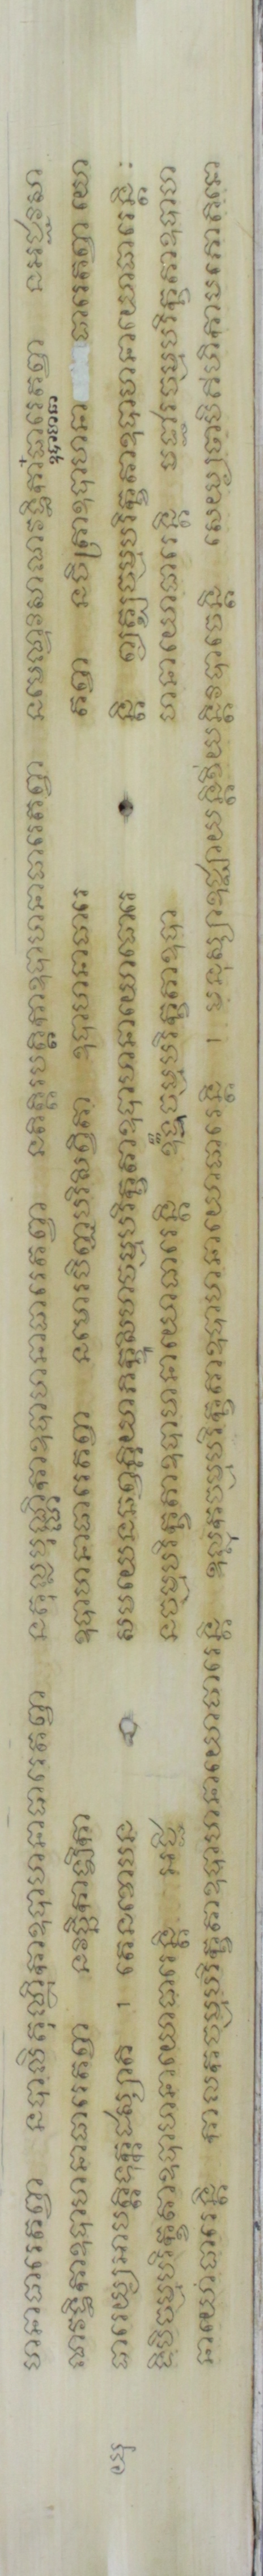 ហនាធារេតព្វា នបាលិគុណ្ឋិកាឧបាហនាធារេតព្វា នតុលបុណ្ណិកាឧបាហនាធារេតព្វា នតិត្តិរបត្តិកាឧបាហនាធារេតព្វា នមេណ្ឌវិសាណវដ្ឍិកាធារេតព្វា នអជ្ជវិសា
ឧបាហនា
ណវដ្ឍិកាឧបាហនាធារេតព្វា នវិច្ឆិកាឡិកា ឧបាហនាធារេតព្វា នមោរបិញ្ឆបរិសិព្វិតា ឧបាហនាធារេ តព្វា នចិត្រាឧបាហនា ធារេតព្វា យោ
យុ ធារេយ្យអាបត្តិទុក្កដស្សាតិ ។ តេនខោបន សមយេនឆព្វគ្គិយាភិក្ខូសីហចម្មបរិក្ខតាឧបាហនាយោធារេ ន្តិ ព្យគ្ឃចម្មបរិក្ខតាឧបាហនាយោធារេន្តិ
ទិបិចម្មបរិក្ខតាឧបាហនាយោធារេន្តិ អជិ នចម្មបរិក្ខតាឧបាហនាយោធារេន្តិ ឧទ្ទចម្មបរិក្ខតាឧបា ហនាយោធារេន្តិ មជ្ជារិចម្មបរិក្ខតាឧបាហ
នាយោធារេន្តិ កាលកចម្មបរិក្ខតាឧបាហនាយោធារេន្តិ ឧលុកចម្មបរិក្ខតាឧបាហនាយោធារេន្តិ ។ មនុស្សាឧជ្ឈាយន្តិខិយន្តិវិបាចេន្តិ សេយ្យថាបិគិហិកាមភោគិនោ